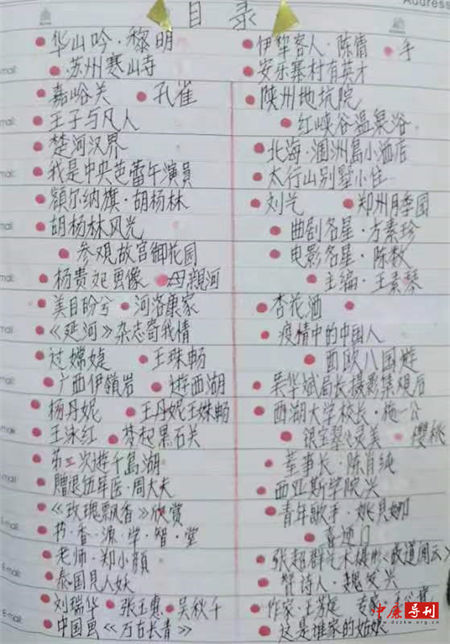 目录
Address
华山吟·黎明
苏州寒山寺
嘉峪关 孔雀
王子与凡人
楚河汉界
我是中央芭蕾午演員
額尔纳旗·胡杨林
胡杨林风光
参观故宫御花园
杨贵妃画像 母親河
美目盼兮 河洛康家
《延河》杂志前我情
过嫦娥 王珠畅
广西伊嶺岩 遊西湖
杨丹妮 王丹妮王姝畅
王冰红 梦起黑石关
第三次遊千島湖
贈退伍军医·周大夫
《玫瑰飘香》欣赏
书·香·源·学·智·堂
老师·郑小顏
泰国見人妖
刘瑞华 张玉惠 吴秋千
中国画《万古长青》
伊犁客人·陈倩 手
安乐寨村有英才
陕州地坑院
红峡谷温泉浴
北海·涠洲島小酒店
太行山别墅小住
刘艺 郑州月季園
曲剧名星·方素珍
电影名星·陈数
主编·王素琴
杏花酒
疫情中的中国人
西欧八国遊
吴华斌局长摄影集观后
西湖大学校长·施一公
银玉翠 灵芙 櫻桃
董事长·陈肖纯
西亚斯学院兴
青年歌手·姚貝娜
喜迎门
张超群艺术摄影《故道闲云》
贊诗人·魏安兴
这是谁家的姑娘
中原导刊
www.dzzkw.org.cn